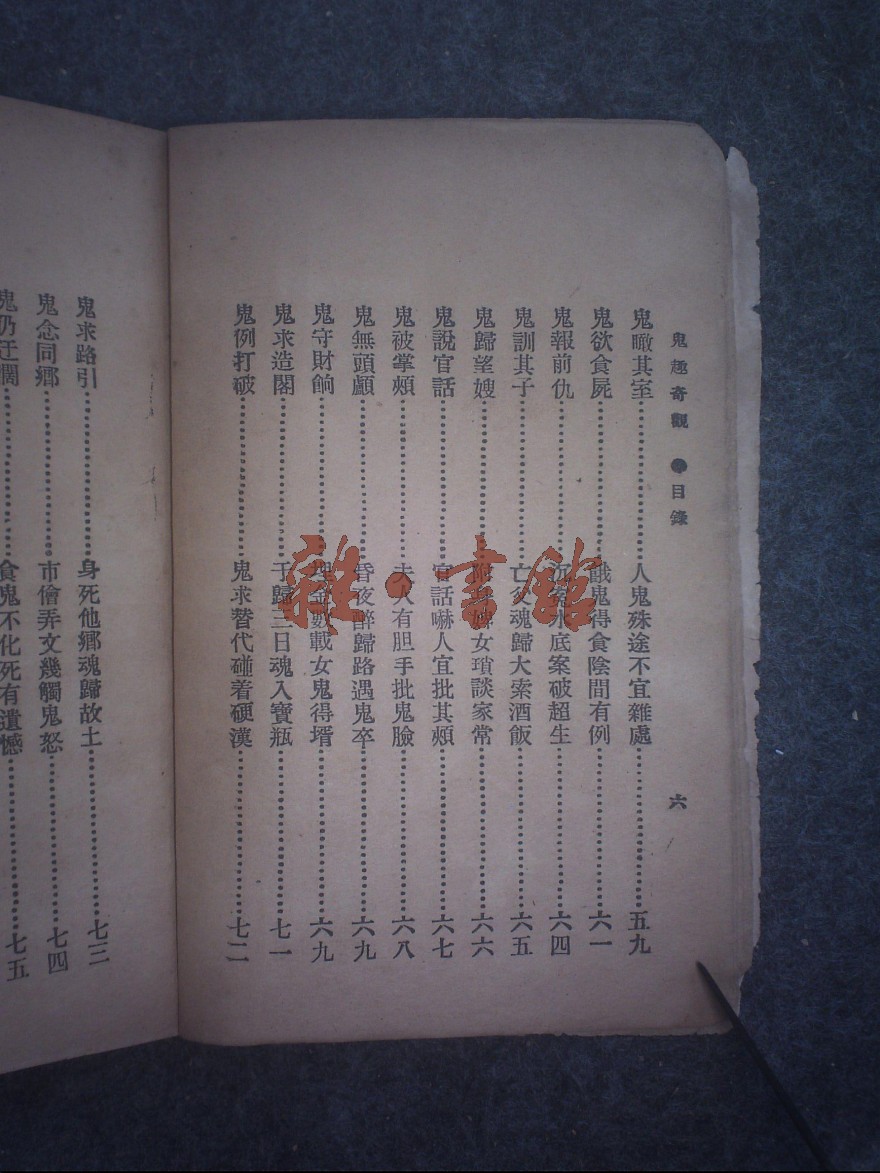 鬼趣奇觀 ●目錄 六
鬼瞰其室……人鬼殊途不宜雜處……五九
鬼欲食屍……餓鬼得食陰間有例……六一
鬼報前仇……沉冤水底案破超生……六四
鬼訓其子……亡父魂歸大索酒飯……六五
鬼歸望嫂……附身婦女瑣談家常……六六
鬼說官話……官話嚇人宜批其頰……六七
鬼被掌頰……夫人有胆手批鬼臉……六八
鬼無頭顱……昏夜醉歸路遇鬼卒……六九
鬼守財餉……埋金數載女鬼得壻……六九
鬼求造閣……于歸三日魂入寶瓶……七一
鬼例打破……鬼求替代碰着硬漢……七二
鬼求路引……身死他鄉魂歸故土……七三
鬼念同鄉……市儈弄文幾觸鬼怒……七四
鬼仍迂闊……食鬼不化死有遺憾……七五
雜·書館